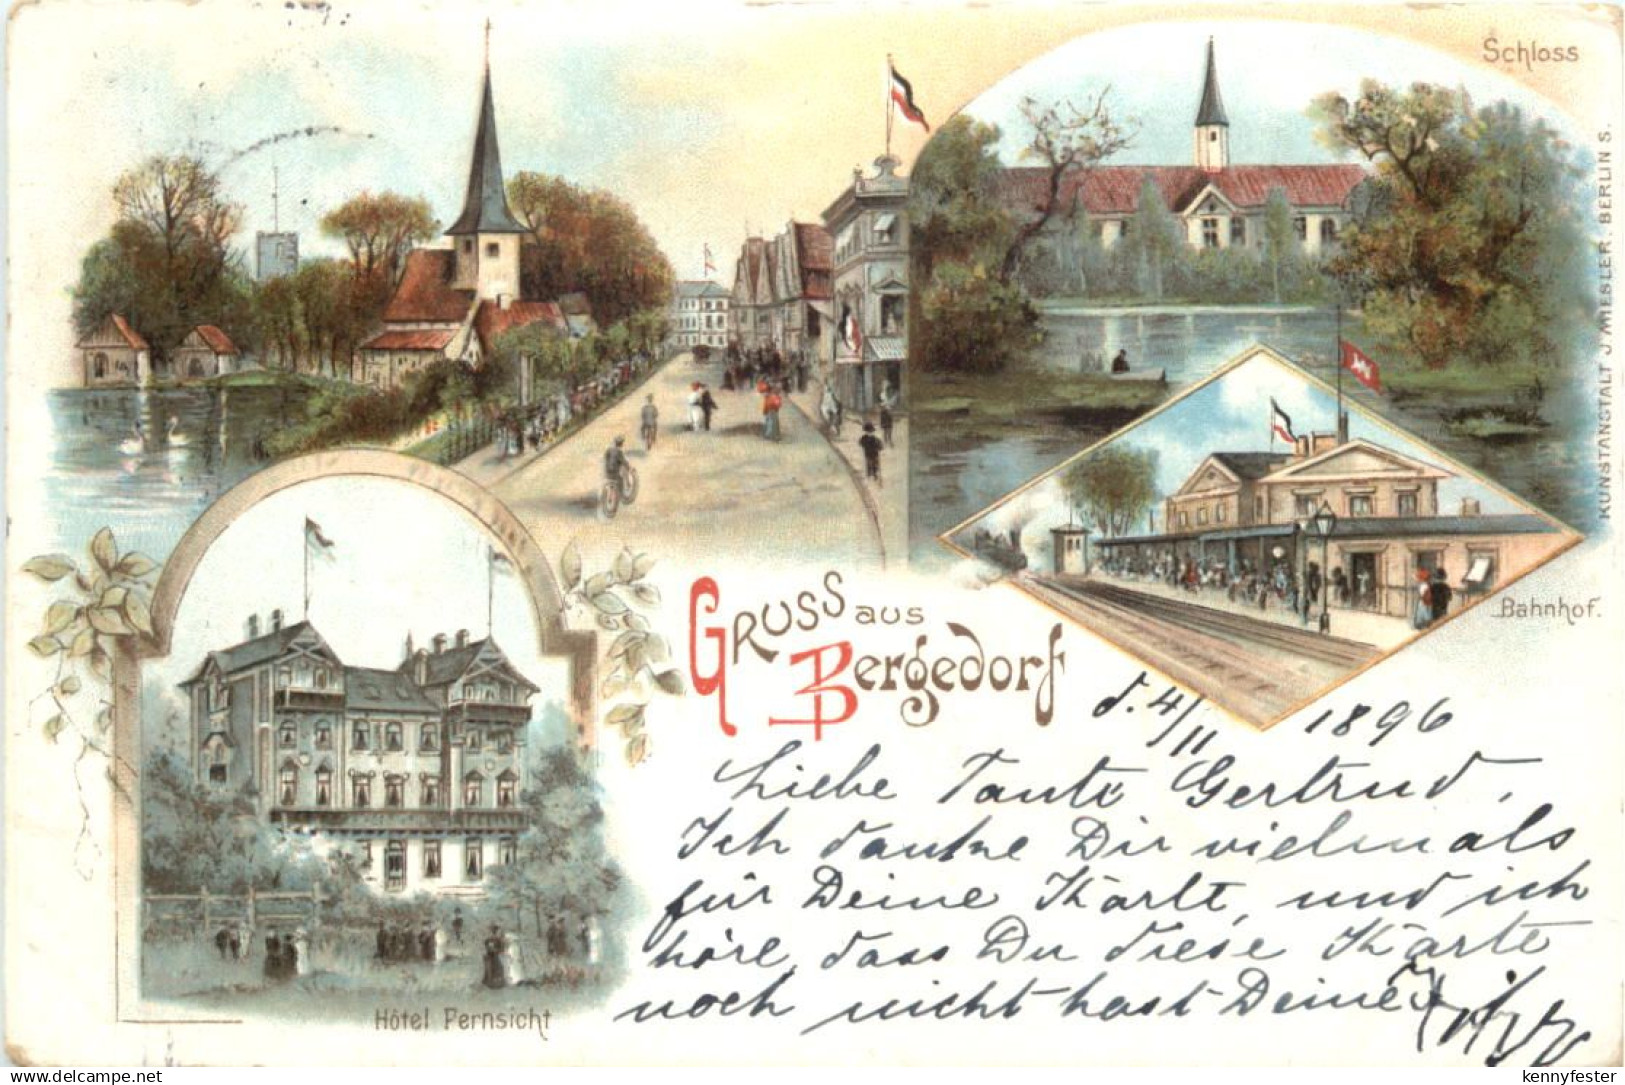 Schloss
KUNSTANSTALT J. MIESLER, BERLIN S.
Bahnhof.
GRUSS aus
Bergedorf
Hôtel Fernsicht
d. 4/11 1896
Liebe Tante Gertrud,
Ich danke Dir vielmals
für Deine Karte, und ich
höre, dass Du diese Karte
noch nicht hast Deine
delcampe.net
kennyfester